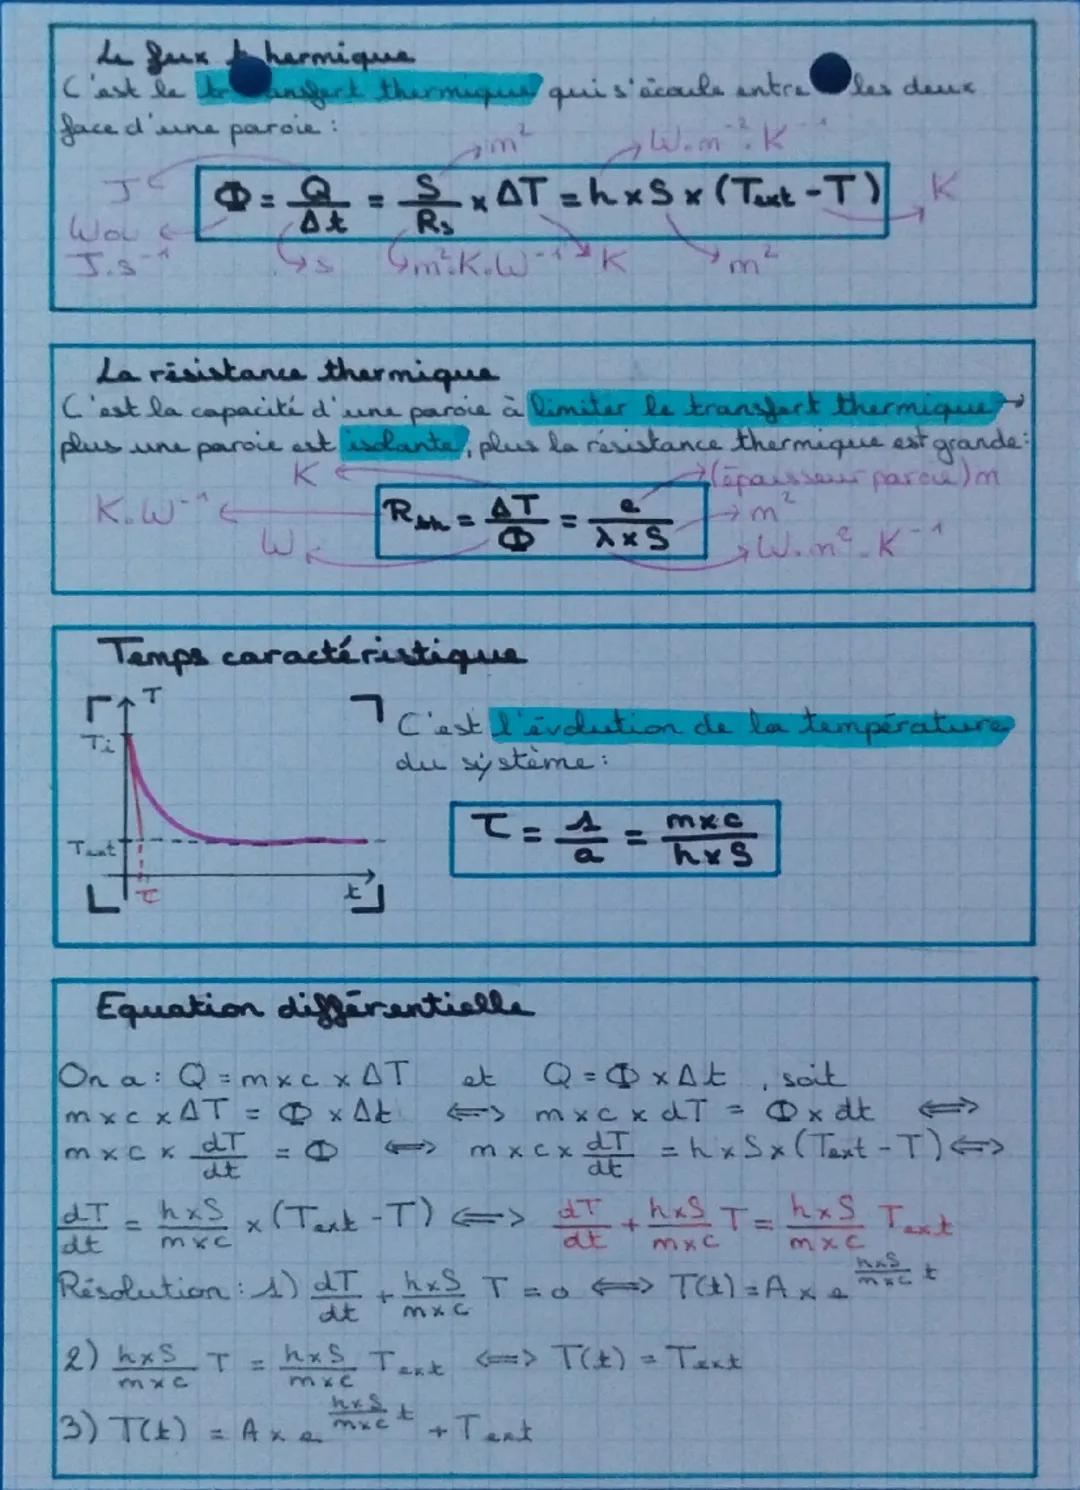 Le flux thermique
C'est le transfert thermique qui s'écoule entre les deux
face d'une paroie :
J m² W.m⁻².K⁻¹
Φ = Q/Δt = S/Rs × ΔT = h × S × (Text - T) K
W ou J.s⁻¹ s m².K.W⁻¹ K m²
La résistance thermique
C'est la capacité d'une paroie à limiter le transfert thermique →
plus une paroie est isolante, plus la résistance thermique est grande :
K (épaisseur paroie) m
K.W⁻¹ Rth = ΔT/Φ = e/(λ × S) m²
W W.m².K⁻¹
Temps caractéristique
T
Ti C'est l'évolution de la température
du système :
Text τ = 1/a = (m×c)/(h×S)
τ t
Equation différentielle
On a : Q = m×c×ΔT et Q = Φ×Δt, soit
m×c×ΔT = Φ×Δt ⟺ m×c×dT = Φ×dt ⟺
m×c× dT/dt = Φ ⟺ m×c× dT/dt = h×S×(Text - T) ⟺
dT/dt = (h×S)/(m×c) × (Text - T) ⟺ dT/dt + (h×S)/(m×c) T = (h×S)/(m×c) Text
Résolution : 1) dT/dt + (h×S)/(m×c) T = 0 ⟺ T(t) = A × e^((h×S)/(m×c) t)
2) (h×S)/(m×c) T = (h×S)/(m×c) Text ⟺ T(t) = Text
3) T(t) = A × e^((h×S)/(m×c) t) + Text